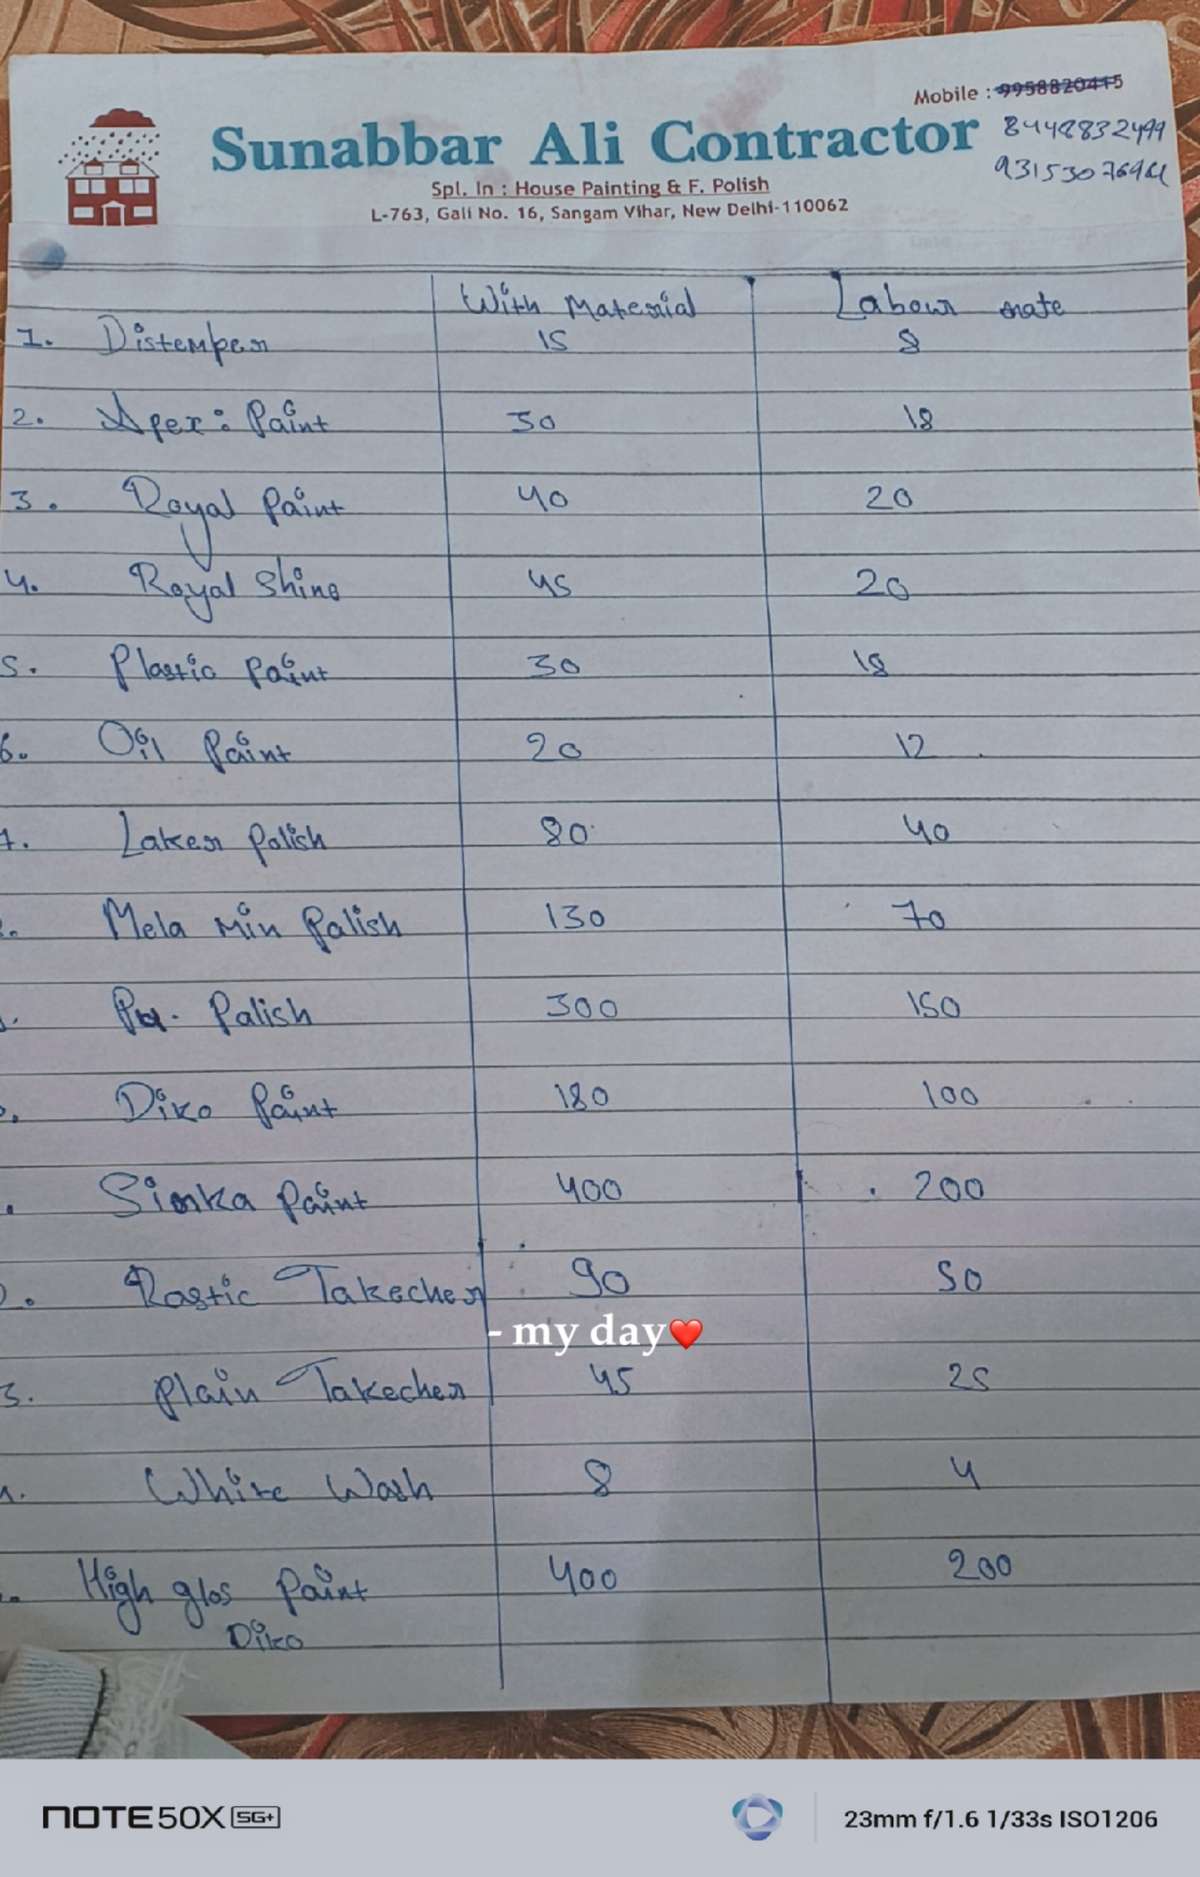 Mobile : 9958820415
Sunabbar Ali Contractor
8448832499
9315307694
Spl. In : House Painting & F. Polish
L-763, Gali No. 16, Sangam Vihar, New Delhi-110062
With Material Labour rate
1. Distemper 15 8
2. Apex: Paint 30 18
3. Royal Paint 40 20
4. Royal Shine 45 20
5. Plastic Paint 30 18
6. Oil Paint 20 12
7. Laker Palish 80 40
Mela Min Palish 130 70
Pu. Palish 300 150
Diko Paint 180 100
Sirka Paint 400 200
Rastic Takecher 90 50
- my day❤️
3. Plain Takecher 45 25
White Wash 8 4
High glos Paint 400 200
Diko
NOTE 50X 5G+
23mm f/1.6 1/33s ISO1206